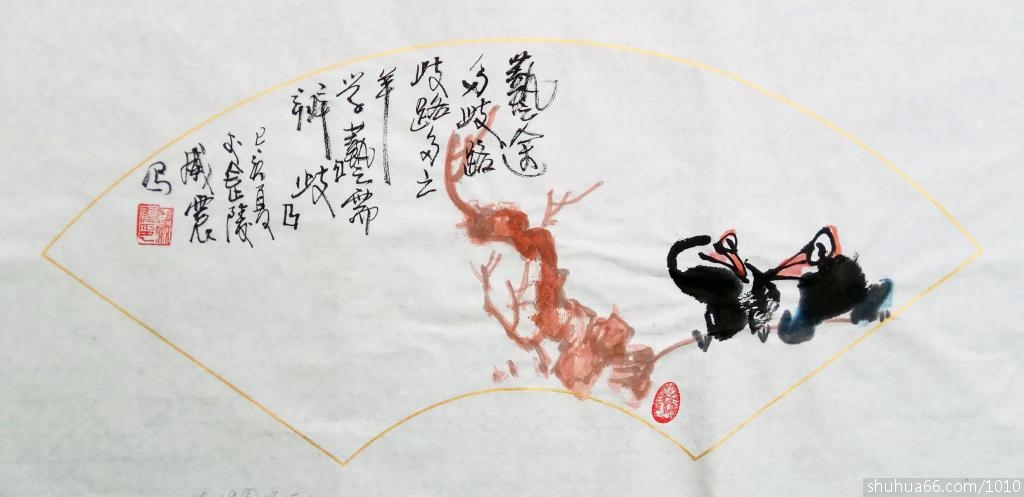 藝途
多歧路
歧路多亡
羊
学藝需
辨歧
己亥夏
金陵
威震
写
shuhua66.com/1010